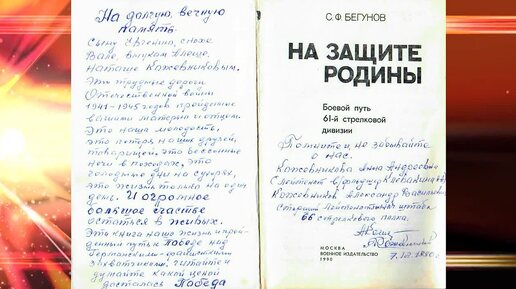 На долгую, вечную
память.
Сыну Евгению, снохе
Вале, внукам Алеше,
Наташе Кожевниковым.
Это трудные дороги
Отечественной войны
1941-1945 годов пройденные
вашими матерью и отцом.
Это наша молодость,
это потеря наших друзей,
товарищей, это бессонные
ночи в походах, это
голодные дни на сухарях,
это жизнь только на один
день. И огромное
большое счастье
остаться в живых.
Эта книга наша жизнь и прой-
денный путь к Победе над
Германскими-фашистскими
захватчиками. Читайте и
думайте какой ценой
досталась Победа
С. Ф. БЕГУНОВ
НА ЗАЩИТЕ
РОДИНЫ
Боевой путь
61-й стрелковой
дивизии
Помните и не забывайте
о нас.
Кожевникова Анна Андреевна
Кожевников Александр Васильевич
старший лейтенант штаба
66 стрелкового полка.
МОСКВА
ВОЕННОЕ ИЗДАТЕЛЬСТВО
1990